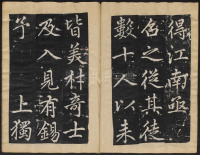 得江南亟
召之從其徒
數十人以来
皆美材奇士
及入見有錫
乎上獨